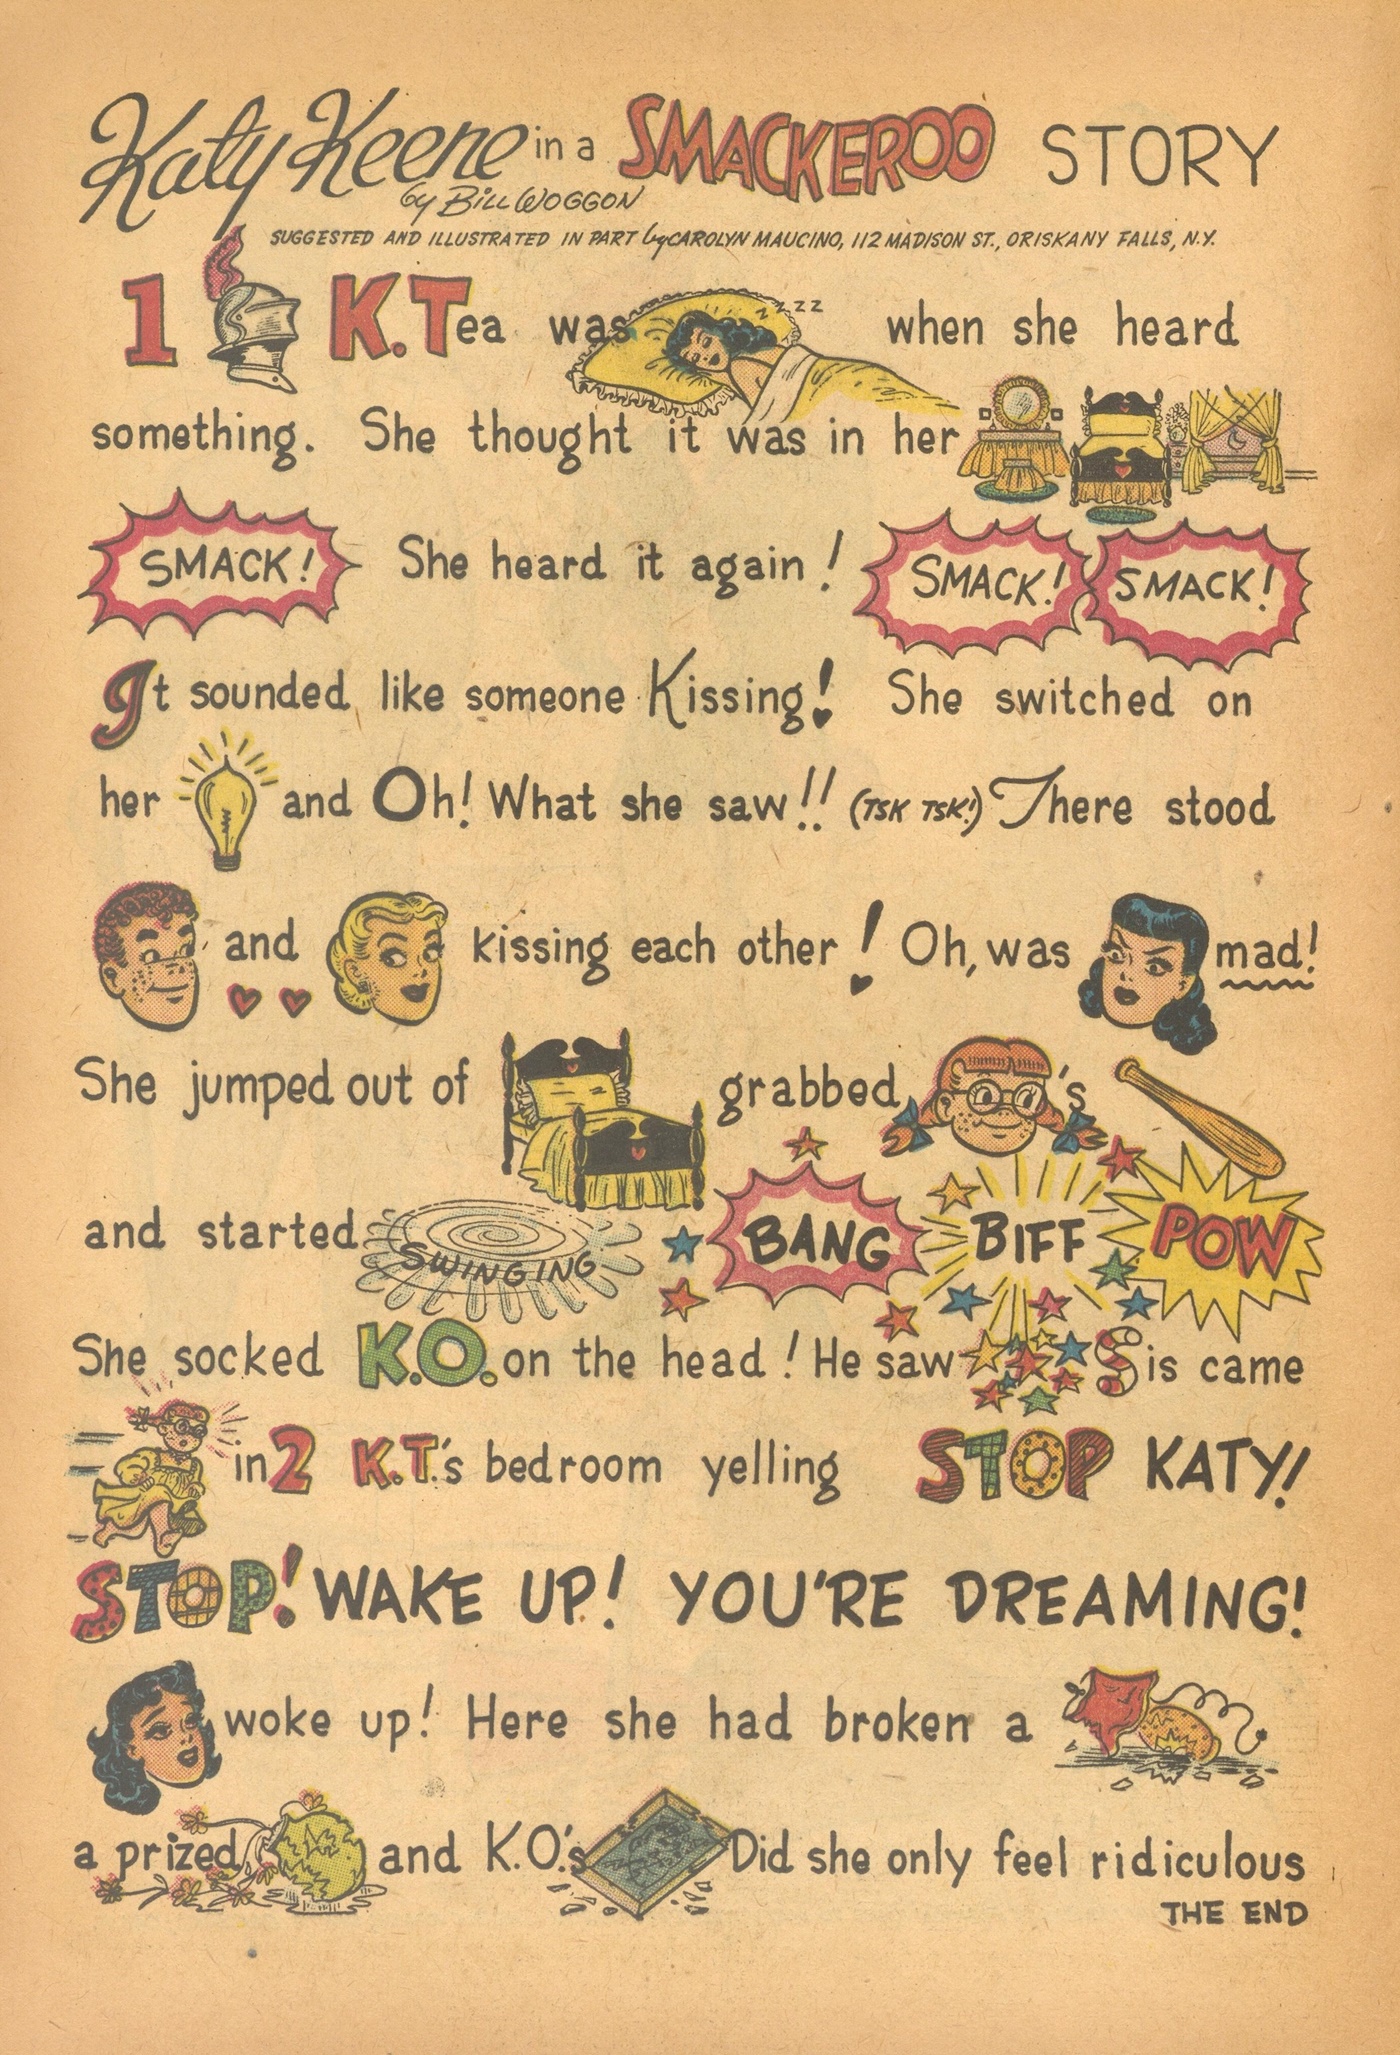 Katy Keene in a SMACKEROO STORY
by Bill Woggon
SUGGESTED AND ILLUSTRATED IN PART by CAROLYN MAUCINO, 112 MADISON ST., ORISKANY FALLS, N.Y.
1 K.Tea was zzzz when she heard
something. She thought it was in her
SMACK! She heard it again! SMACK! SMACK!
It sounded like someone Kissing! She switched on
her and Oh! What she saw!! (TSK TSK!) There stood
and kissing each other! Oh, was mad!
She jumped out of grabbed 's
and started SWINGING BANG BIFF POW
She socked K.O. on the head! He saw Sis came
in 2 K.T.'s bedroom yelling STOP KATY!
STOP! WAKE UP! YOU'RE DREAMING!
woke up! Here she had broken a
a prized and K.O.'s Did she only feel ridiculous
THE END